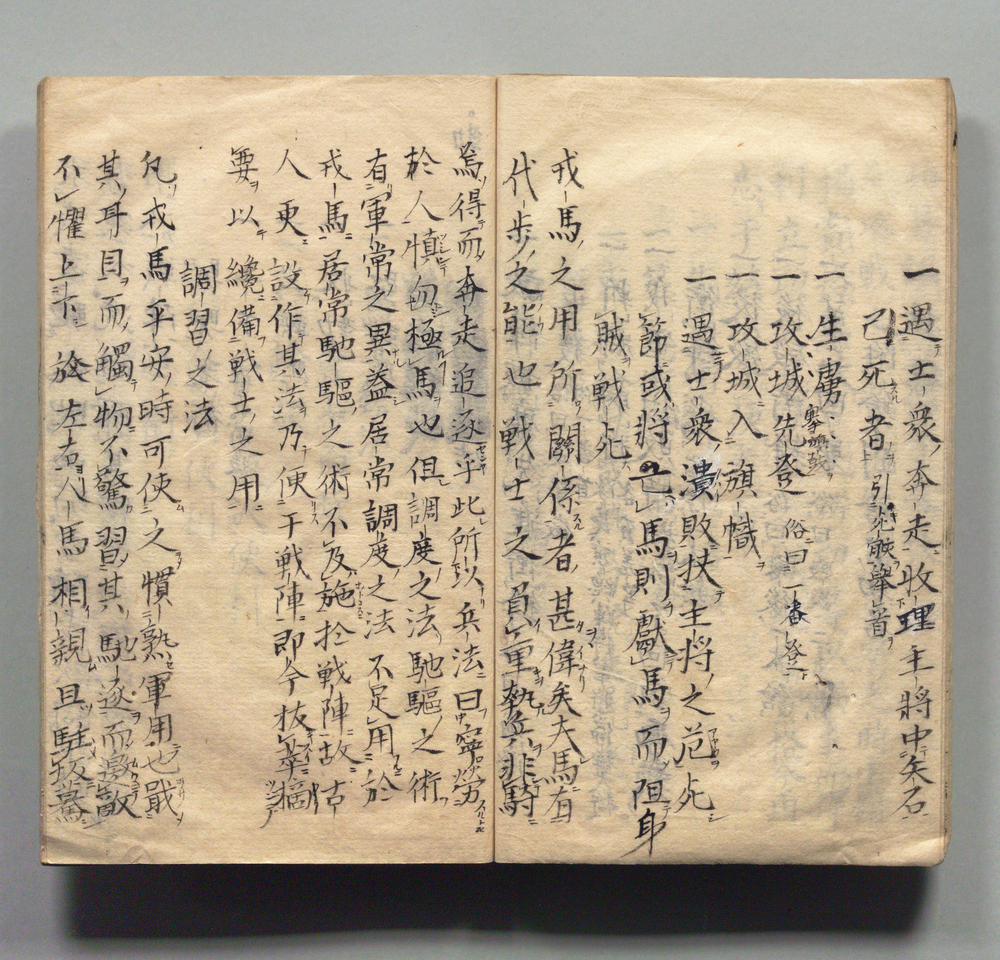 一遇士衆奔走收理主將中矢石
己死者引死骸舉首
一生虜
一攻城先登俗曰一番登
一攻城入旗幟
一遇士衆潰敗扶主將之危死
節或將亡馬則獻馬而阻身
賊戰死
戎馬之用所關係者甚偉矣夫馬有
代步之能也戰士之負重執兵非騎
焉得而奔走追逐乎此所以兵法曰寧勞
於人慎勿極馬也但調度之法馳驅之術
有軍常之異蓋居常調度之法不足用於
戎馬居常馳驅之術不及施於戰陣故
人更設作其法乃便于戰陣即今拔萃摘
要以纔備戰士之用
調習之法
凡戎馬平安時可使之慣熟軍用也戢
其耳目而觸物不驚習其馳逐而邀敵
不懼上下於左右人馬相親且駐坂驀